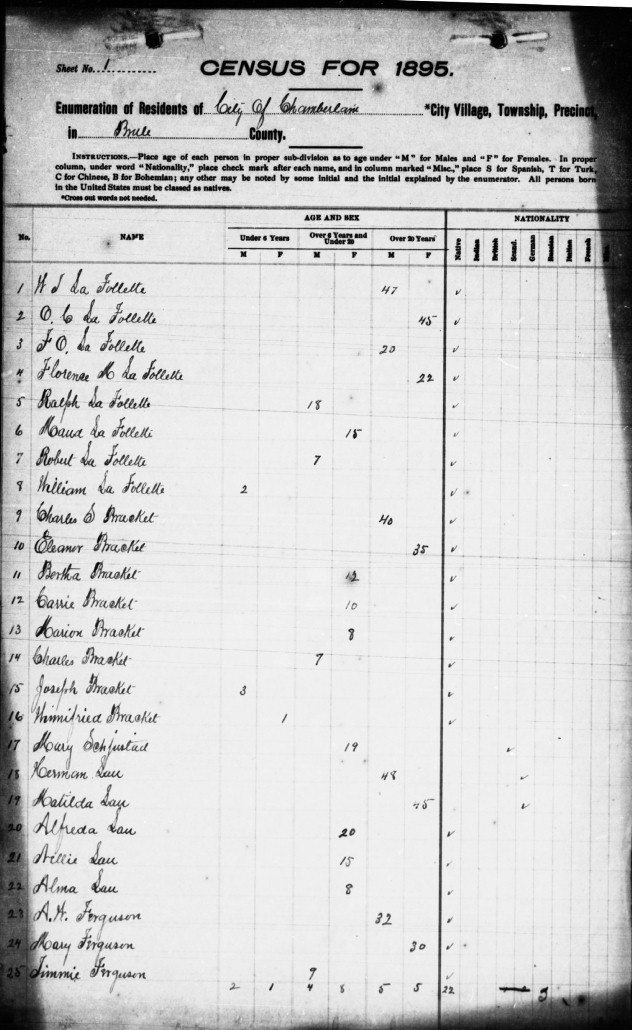 Sheet No. 1
CENSUS FOR 1895.
Enumeration of Residents of City Of Chamberlain *City Village, Township, Precinct,
in Brule County.
INSTRUCTIONS.—Place age of each person in proper sub-division as to age under "M" for Males and "F" for Females. In proper
column, under word "Nationality," place check mark after each name, and in column marked "Misc.," place S for Spanish, T for Turk,
C for Chinese, B for Bohemian; any other may be noted by some initial and the initial explained by the enumerator. All persons born
in the United States must be classed as natives.
*Cross out words not needed.
AGE AND SEX NATIONALITY
No. NAME Under 6 Years Over 6 Years and Under 20 Over 20 Years Native Indian British Scand. German Russian Italian French
M F M F M F
1 W J La Follette 47 ✓
2 O. C La Follette 45 ✓
3 F O. La Follette 20 ✓
4 Florence M La Follette 22 ✓
5 Ralph La Follette 18 ✓
6 Maud La Follette 15 ✓
7 Robert La Follette 7 ✓
8 William La Follette 2 ✓
9 Charles S Bracket 40 ✓
10 Eleanor Bracket 35 ✓
11 Bertha Bracket 12 ✓
12 Carrie Bracket 10 ✓
13 Marion Bracket 8 ✓
14 Charles Bracket 7 ✓
15 Joseph Bracket 3 ✓
16 Winnifried Bracket 1 ✓
17 Mary Schjustad 19 ✓
18 Herman Lau 48 ✓
19 Matilda Lau 45 ✓
20 Alfreda Lau 20 ✓
21 Nellie Lau 15 ✓
22 Alma Lau 8 ✓
23 A. H. Ferguson 32 ✓
24 Mary Ferguson 30 ✓
25 Jimmie Ferguson 9 ✓
2 1 4 8 5 5 22 — 3